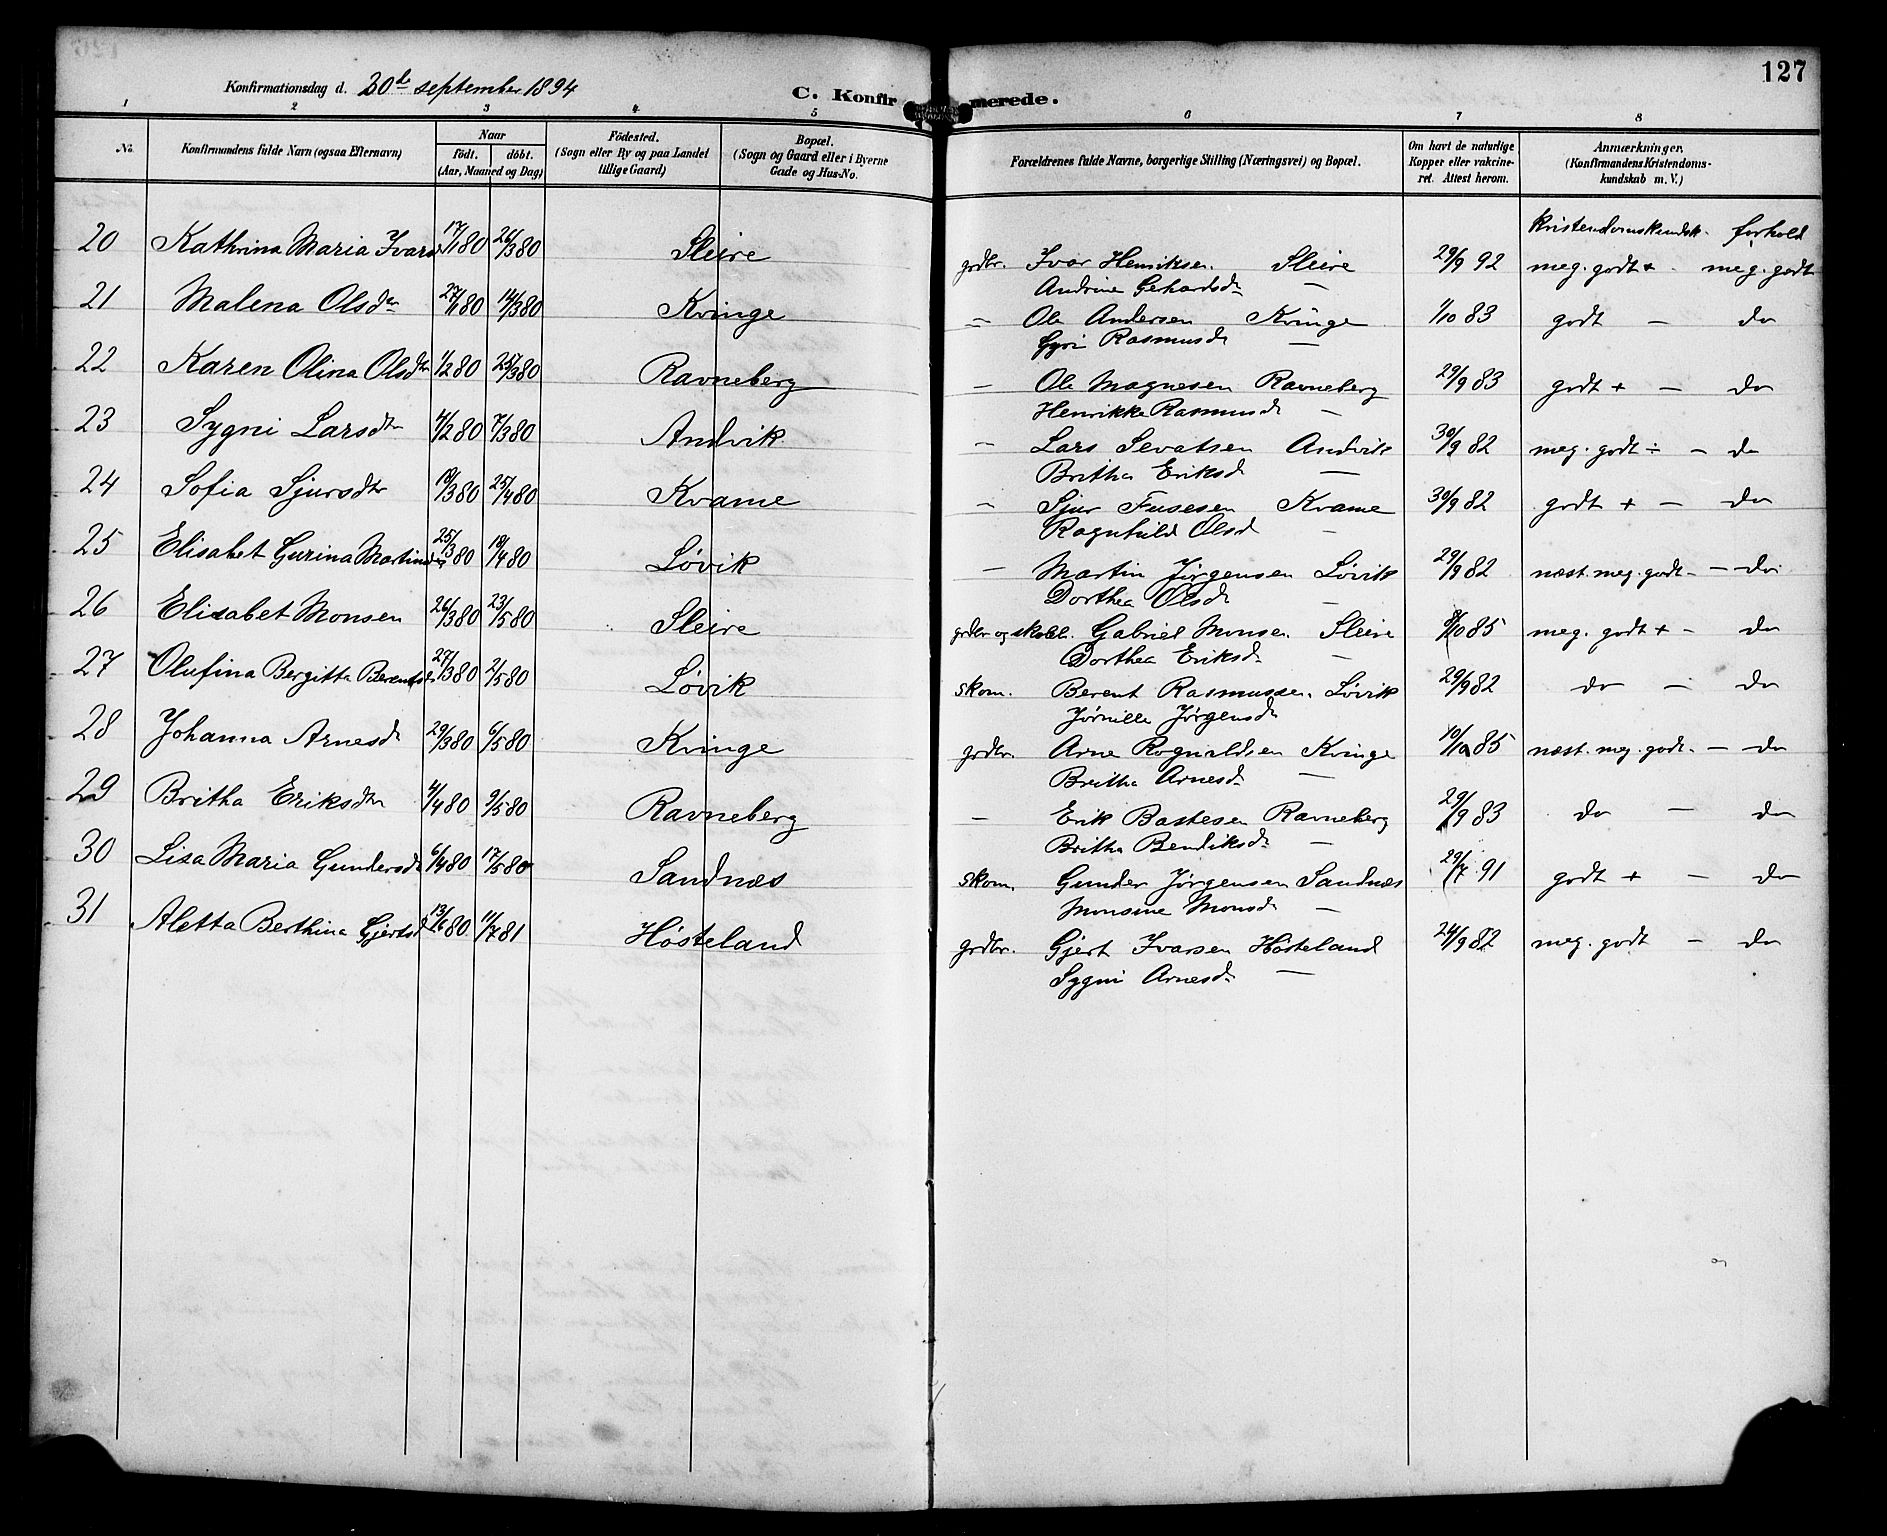 127
Konfirmationsdag d. 30d september 1894
C. Konfirmerede.
1 2 3 4 5 6 7 8
No. Konfirmandens fulde Navn (ogsaa Efternavn) Naar födt. döbt. (Aar, Maaned og Dag) Födested. (Sogn eller By og paa Landet tillige Gaard) Bopæl. (Sogn og Gaard eller i Byerne Gade og Hus-No. Forældrenes fulde Navne, borgerlige Stilling (Næringsvei) og Bopæl. Om havt de naturlige Kopper eller vakcineret. Attest herom. Anmærkninger. (Konfirmandens Kristendomskundskab m. V.)
kristendomskundsk. forhold
20 Kathrina Maria Ivarsd 17/1 80 26/3 80 Sleire grdbr. Ivar Henriksen Sleire 29/9 92 meg. godt + - meg. godt
Andrine Gerhardsdr —
21 Malena Olsdtr 27/1 80 14/3 80 Kvinge — Ole Andersen Kvinge 1/10 83 godt — do
Gyri Rasmusdr —
22 Karen Olina Olsdtr 1/2 80 25/3 80 Ravneberg — Ole Magnesen Ravneberg 29/9 83 godt + — do
Henrikke Rasmusdr —
23 Sygni Larsdtr 4/2 80 7/3 80 Andvik — Lars Sevatsen Andvik 30/9 82 meg. godt ÷ — do
Britha Eriksd —
24 Sofia Sjursdtr 19/3 80 25/4 80 Kvame — Sjur Fusesen Kvame 30/9 82 godt + — do
Ragnhild Olsd —
25 Elisabet Gurina Martinsdtr 25/3 80 18/4 80 Løvik — Martin Jørgensen Løvik 29/9 82 næst. meg. godt - — do
Dorthea Olsdr —
26 Elisabet Monsen 26/3 80 23/5 80 Sleire grdbr og skolel. Gabriel Monsen Sleire 8/10 85 meg. godt + — do
Dorthea Eriksdr —
27 Olufina Bergitta Berentsdr 27/3 80 2/5 80 Løvik skom. Berent Rasmussen Løvik 29/9 82 do — do
Jørnille Jørgensdr
28 Johanna Arnesdr 29/3 80 6/5 80 Kvinge grdbr. Arne Rognaldsen Kvinge 10/10 85 næst. meg. godt. — do
Britha Arnesdr —
29 Britha Eriksdtr 4/4 80 9/5 80 Ravneberg — Erik Bastesen Ravneberg 29/9 83 do — do
Britha Bendiksdr —
30 Lisa Maria Gundersdr 6/4 80 17/5 80 Sandnæs skom. Gunder Jørgensen Sandnæs 29/7 91 godt + — do
Monsine Monsdr —
31 Aletta Berthina Gjertsd 13/6 80 11/7 81 Høsteland grdbr. Gjert Ivarsen Høsteland 24/9 82 meg. godt — do
Sygni Arnesdr —